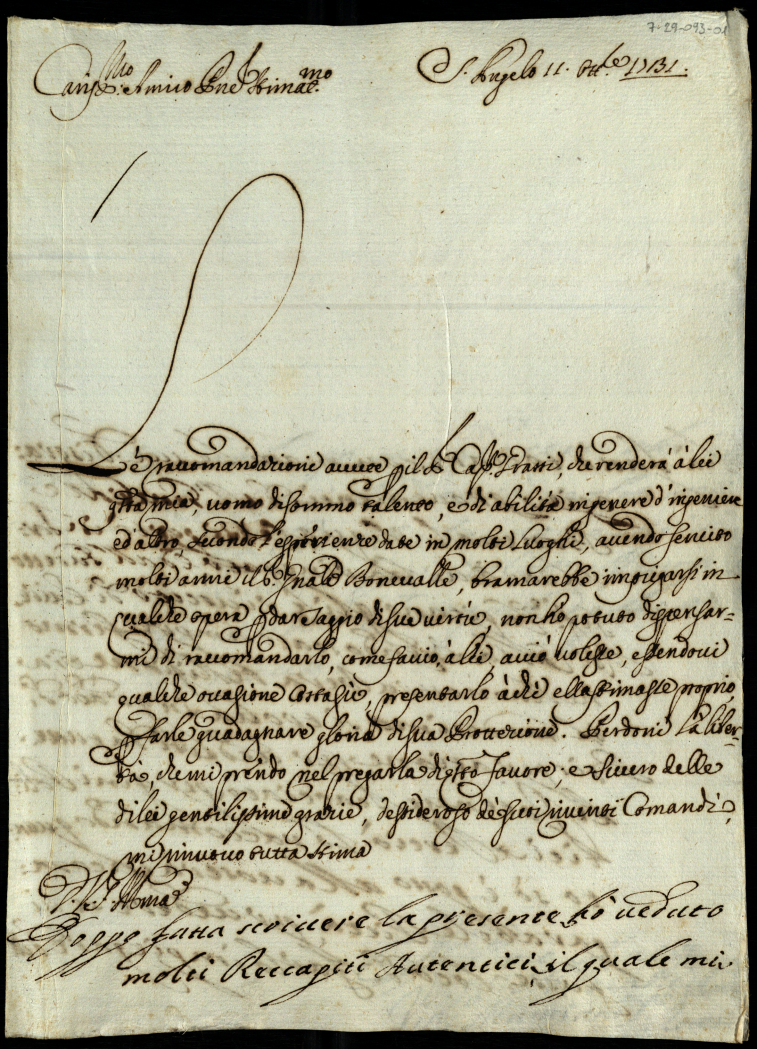 7-29-093-01
Cariss.mo Amico Pne Stimat.mo
S. Angelo 11. Ott.e 1731.
è raccomandazione avuee p il S. Cap. Frassi, che renderà à lei
q.ta mia, uomo di sommo talento, e di abilità in genere d'ingeniere
ed altro, secondo l'esperienze date in molti Luoghi, avendo servito
molti anni il S. Gnale Bonevalle, bramarebbe impiegarsi in
qualche opera p dar saggio di sue virtù, non ho potuto dispensar=
mi di raccomandarlo, come faccio, à lei, acciò volesse, essendovi
qualche occasione costassù, presentarlo à chi ella stimasse proprio,
p farle guadagnare gloria di sua Protterzione. Perdoni la liber=
tà, che mi prendo nel pregarla di q.to favore; e sicuro delle
di lei gentilissime grazie, dessideroso de' suoi Comandi,
mi rinuovo tutta stima
D. V. S. Illma
Doppo fatta scrivere la presente hò veduto
molti Reccapiti Autentici, il quale mi